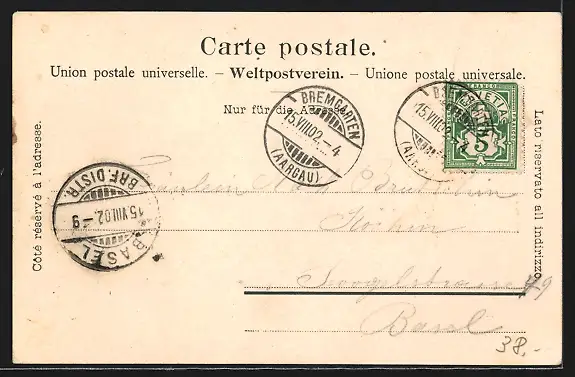 Carte postale.
Union postale universelle. – Weltpostverein. – Unione postale universale.
Nur für die Adresse.
Côté réservé à l'adresse.
Lato riservato all indirizzo
BREMGARTEN
15.VIII.02.-4
(AARGAU)
BREMGARTEN
15.VIII.02
(AARGAU)
HELVETIA
5
BRF. DISTR.
15.VIII.02.-9
BASEL
Fräulein
Köchin
79
Basel
38.-